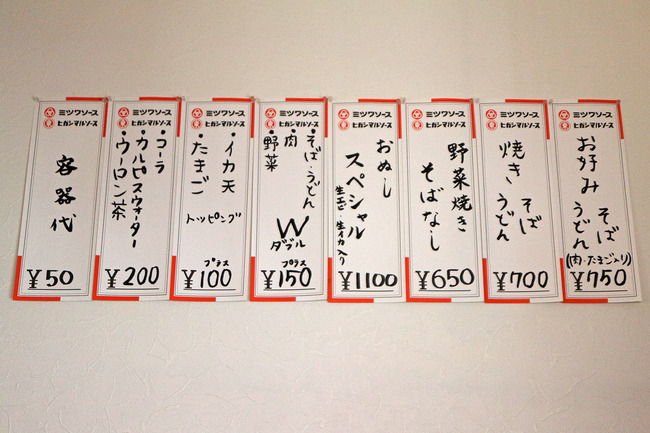 ミツワソース
ヒガシマルソース
お好み
そば
うどん
(肉・たまご入り)
¥750
ミツワソース
ヒガシマルソース
焼き
そば
うどん
¥700
ミツワソース
ヒガシマルソース
野菜焼き
そばなし
¥650
ミツワソース
ヒガシマルソース
おぬし
スペシャル
生エビ・生イカ入り
¥1100
ミツワソース
ヒガシマルソース
・そば・うどん
・肉
・野菜
W
ダブル
プラス
¥150
ミツワソース
ヒガシマルソース
・イカ天
・たまご
トッピング
プラス
¥100
ミツワソース
ヒガシマルソース
・コーラ
・カルピスウォーター
・ウーロン茶
¥200
ミツワソース
ヒガシマルソース
容器代
¥50